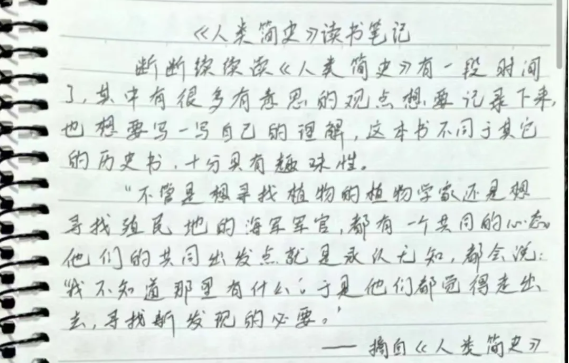 《人类简史》读书笔记
断断续续读《人类简史》有一段时间
了,其中有很多有意思的观点想要记录下来,
也想要写一写自己的理解,这本书不同于其它
的历史书,十分具有趣味性。
“不管是想寻找植物的植物学家还是想
寻找殖民地的海军军官,都有一个共同的心态。
他们的共同出发点就是承认无知,都会说:
“我不知道那里有什么”;于是他们都觉得走出
去,寻找新发现的必要。”
——摘自《人类简史》